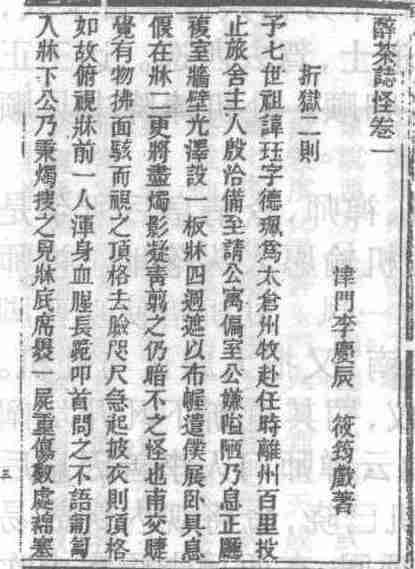 醉茶誌怪卷一
津門李慶辰 筱筠戲著
折獄二則
予七世祖諱珏字德珮為太倉州牧赴任時離州百里投
止旅舍主人殷洽備至請公寓偏室公嫌隘陋乃息正廳
複室牆壁光澤設一板牀四週遮以布幄遣僕展卧具息
偃在牀二更將盡燭影凝靑剪之仍暗不之怪也甫交睫
覺有物拂面駭而視之頂格去臉咫尺急起披衣則頂格
如故俯視牀前一人渾身血腥長跪叩首問之不語匍匐
入牀下公乃秉燭搜之見牀底席裹一屍重傷數處綿塞
三